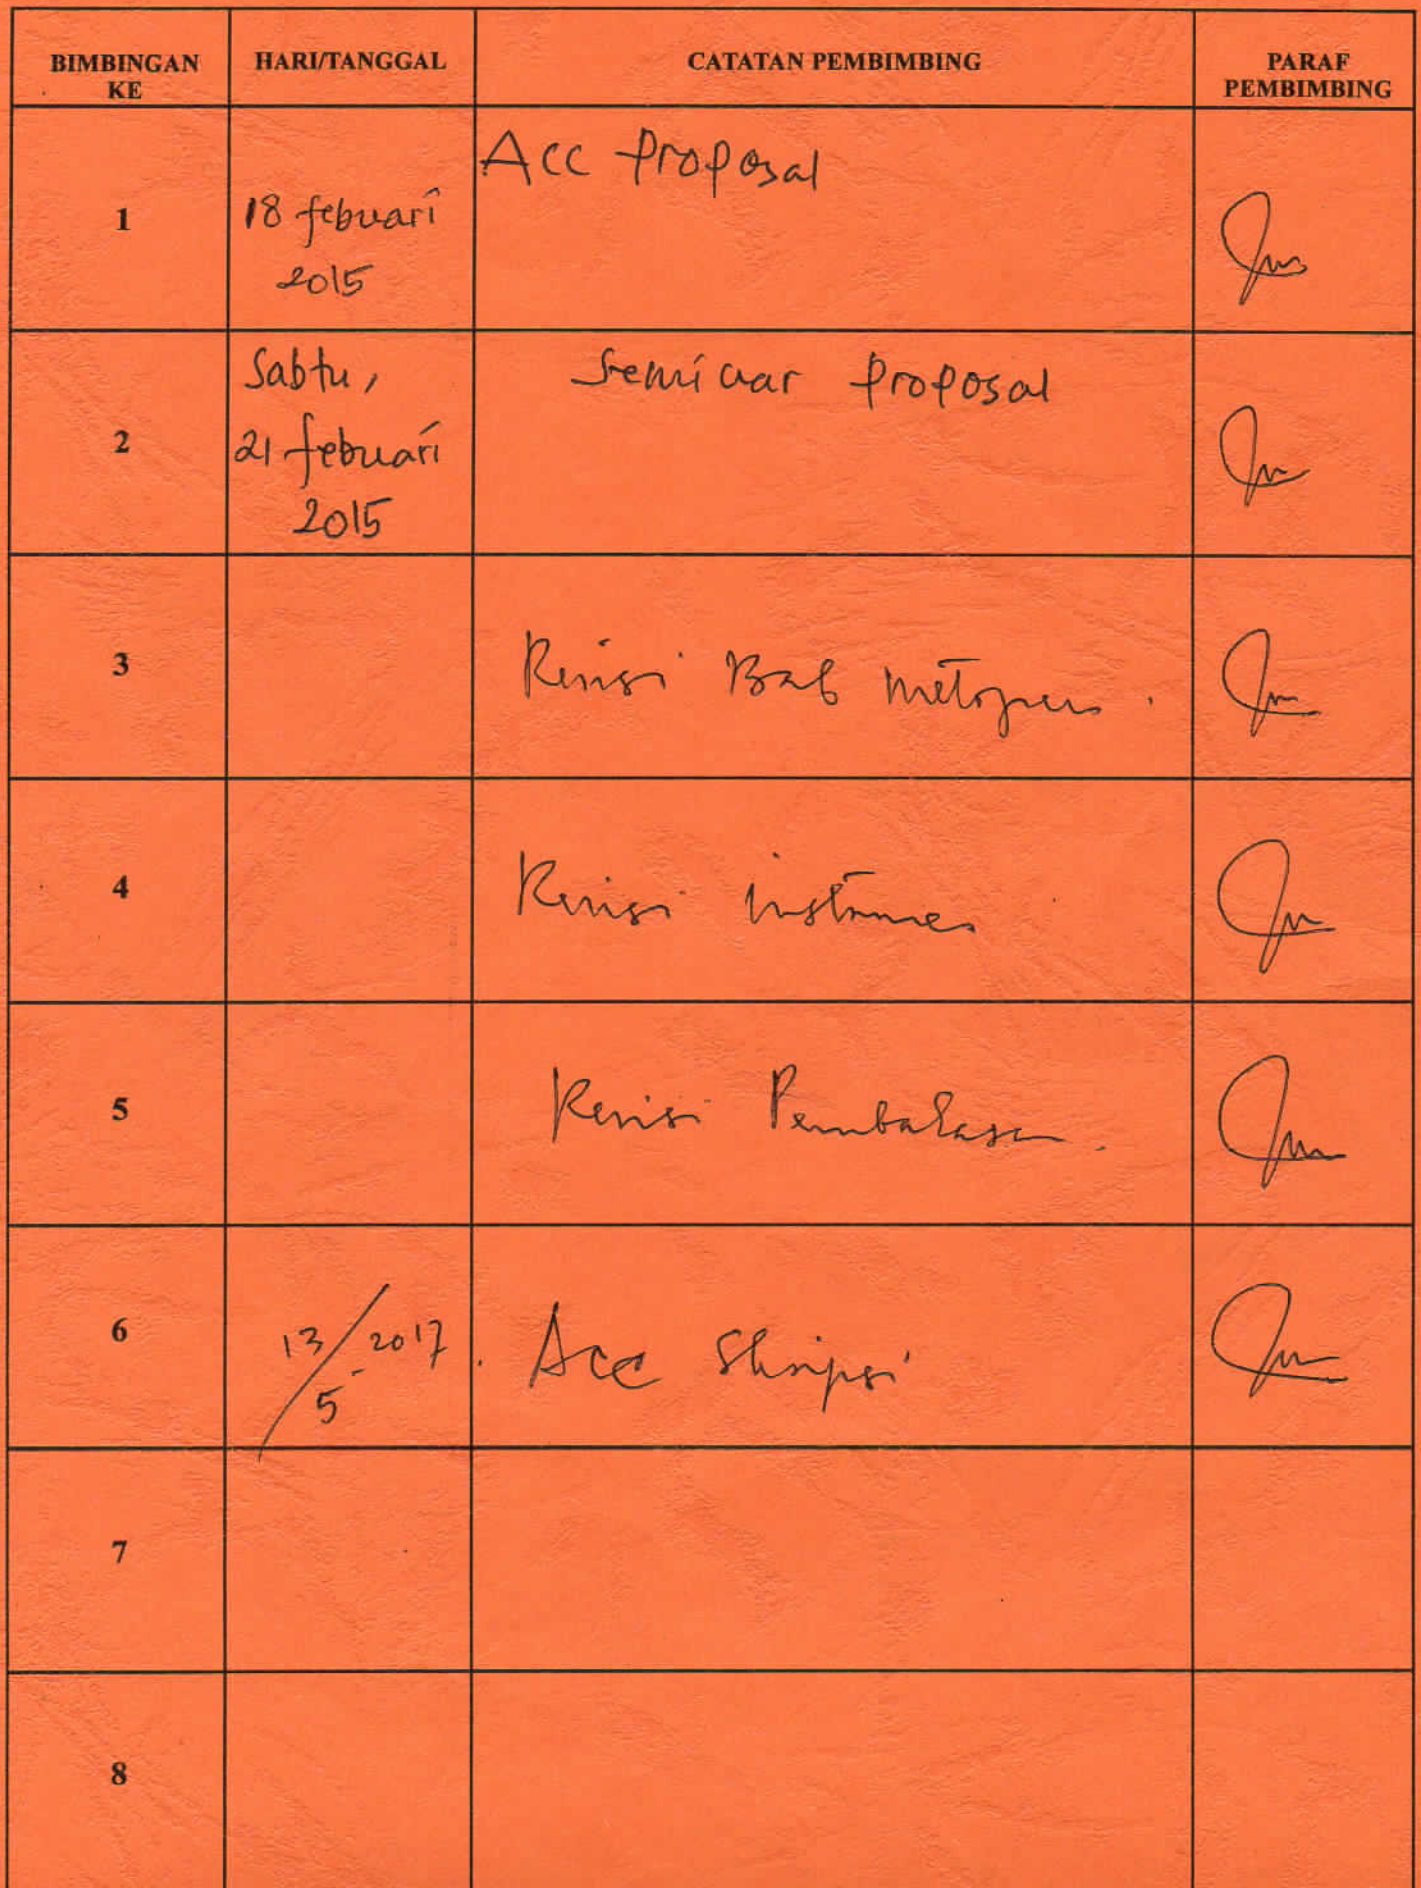 BIMBINGAN KE HARI/TANGGAL CATATAN PEMBIMBING PARAF PEMBIMBING
1 18 febuari 2015 Acc proposal
2 Sabtu, 21 febuari 2015 Seminar proposal
3 Revisi Bab metopen
4 Revisi instrumen
5 Revisi Pembahasan
6 13/5-2017. Acc Skripsi
7
8